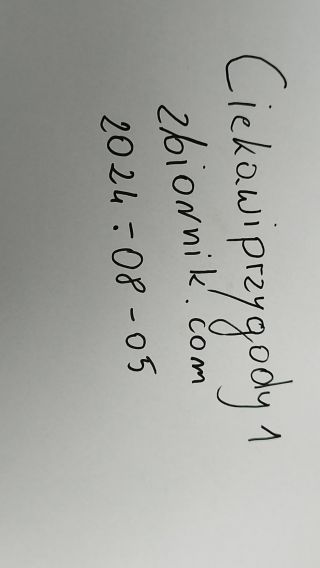 Ciekawiprzygody1
zbiornik.com
2024-08-05